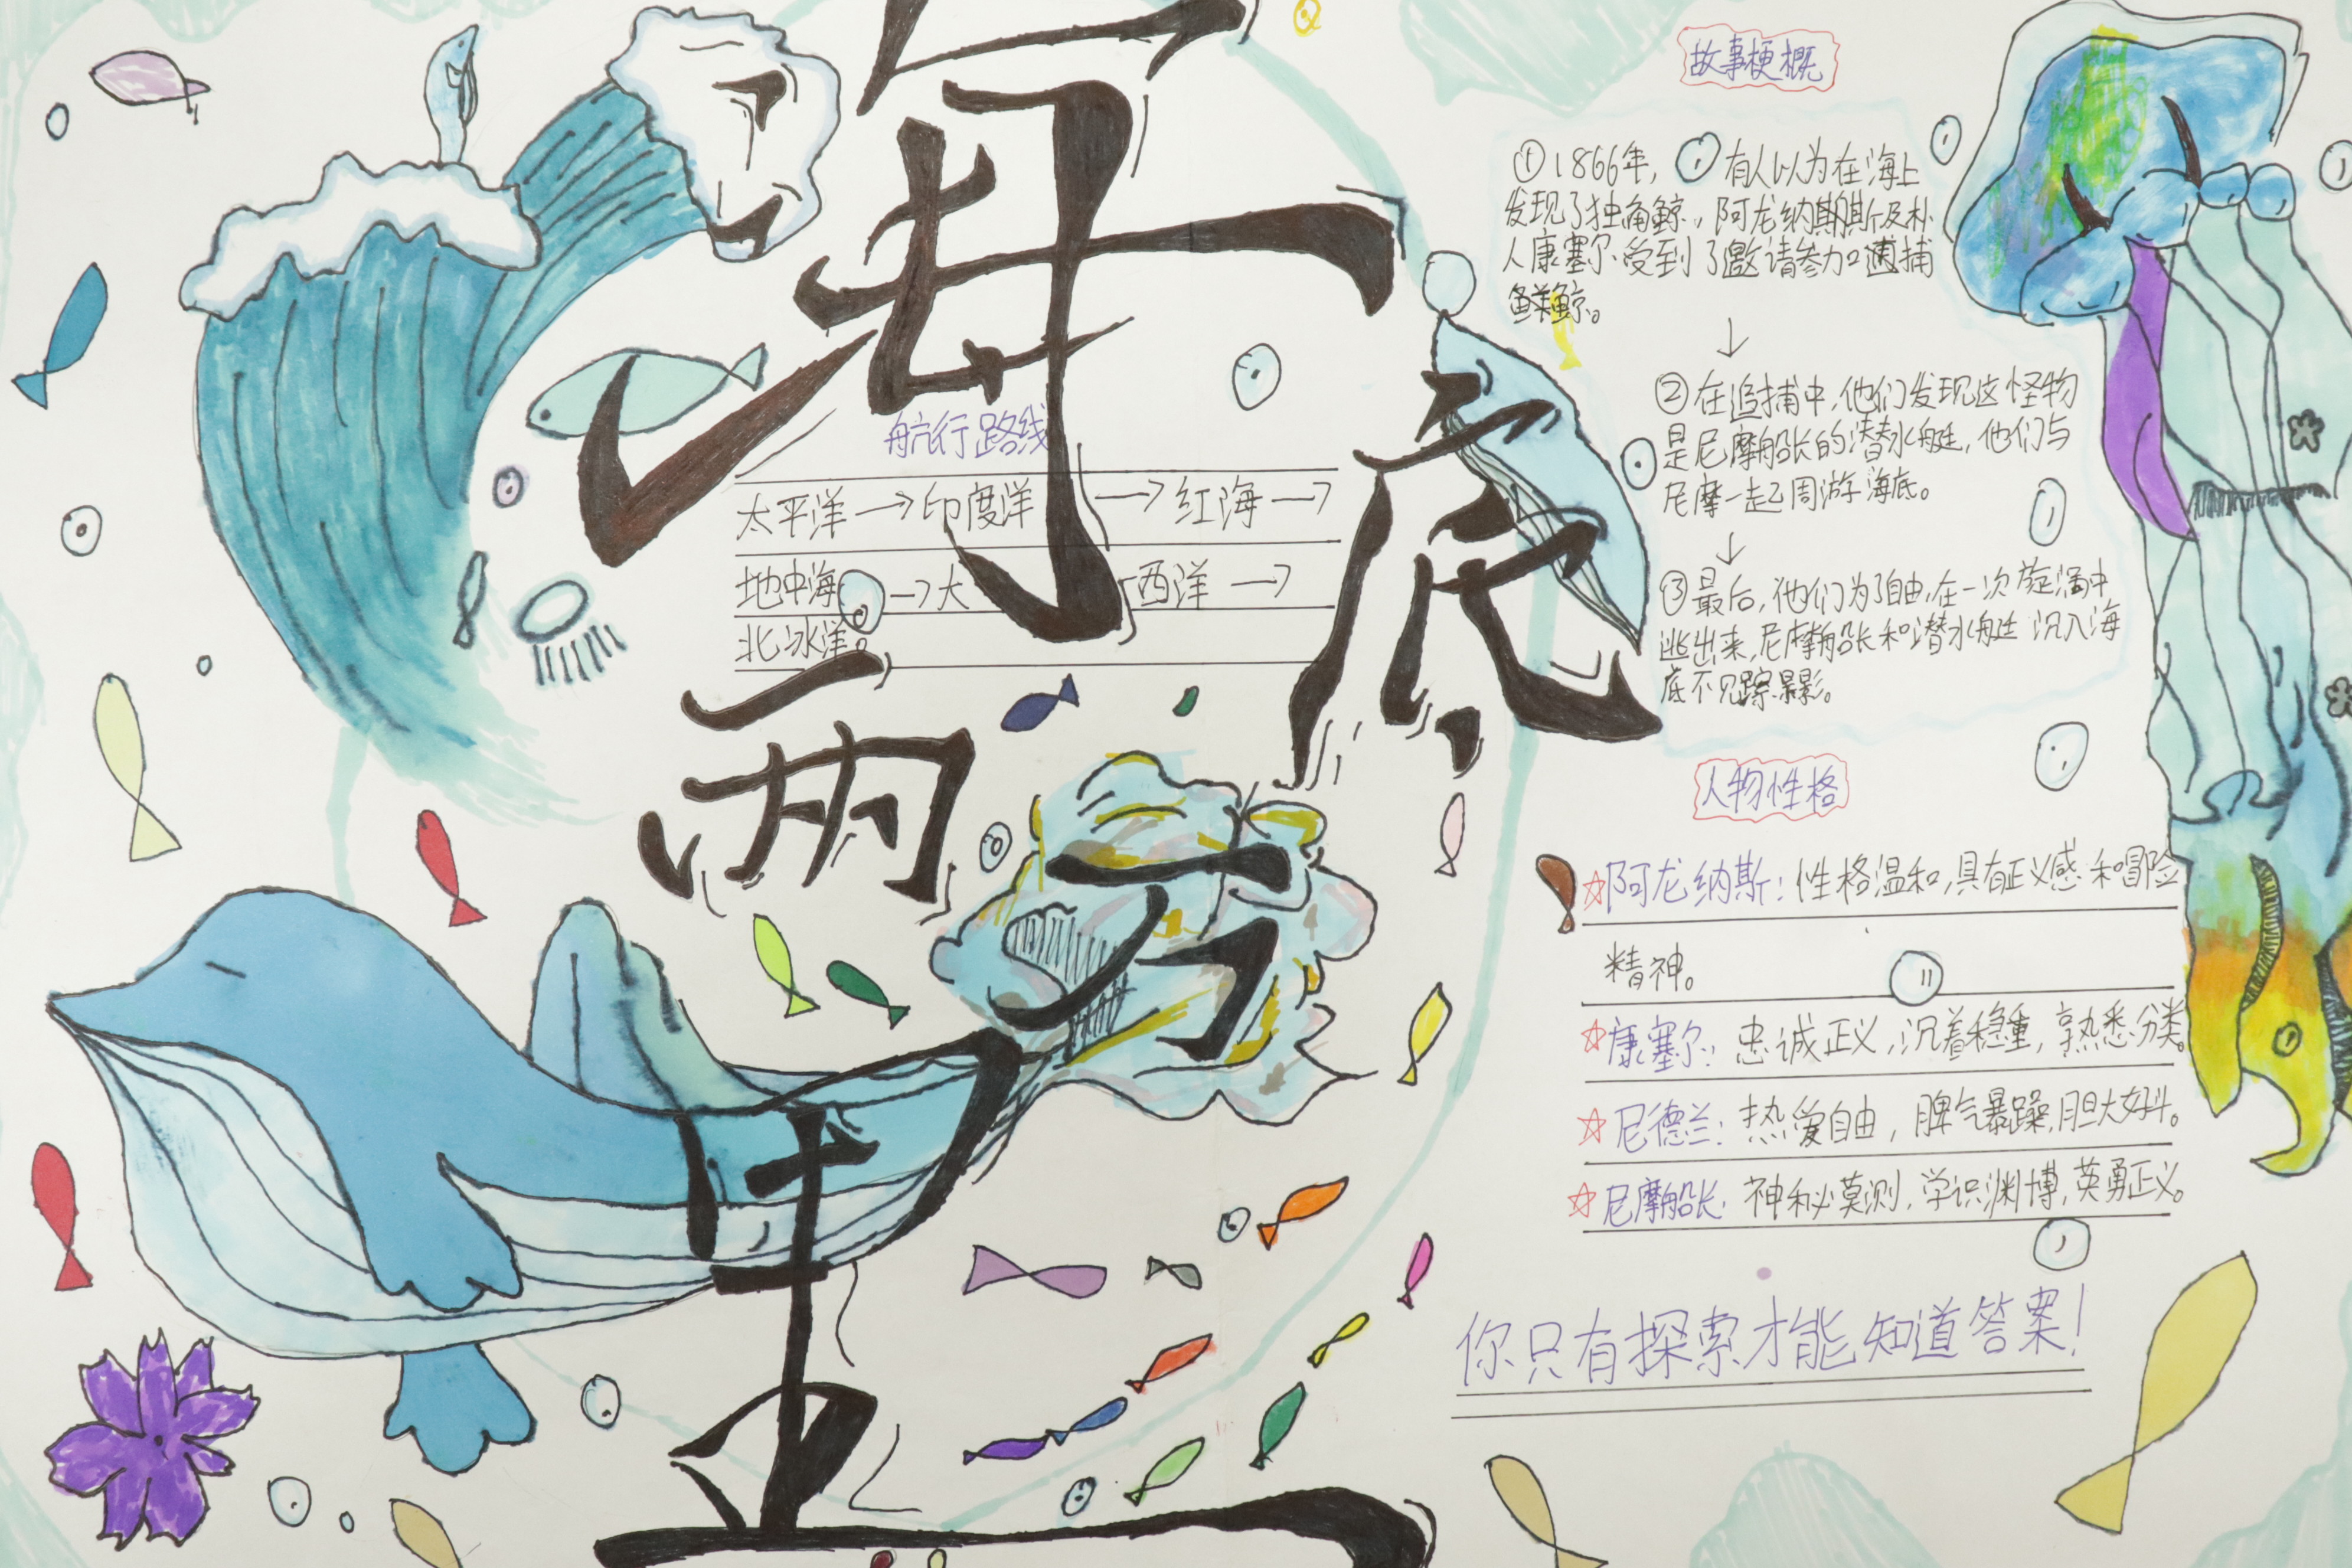 海底两万里
航行路线
太平洋→印度洋→红海→
地中海→大西洋→
北冰洋。
故事梗概
①1866年,有人以为在海上
发现了独角鲸,阿龙纳斯及朴
人康塞尔受到了邀请参加追捕
鲸。
↓
②在追捕中,他们发现这怪物
是尼摩船长的潜水艇,他们与
尼摩一起周游海底。
↓
③最后,他们为了自由,在一次旋涡中
逃出来,尼摩船长和潜水艇沉入海
底不见踪影。
人物性格
☆阿龙纳斯:性格温和,具有正义感和冒险
精神。
☆康塞尔:忠诚正义,沉着稳重,熟悉分类。
☆尼德兰:热爱自由,脾气暴躁,胆大好斗。
☆尼摩船长:神秘莫测,学识渊博,英勇正义。
你只有探索才能知道答案!